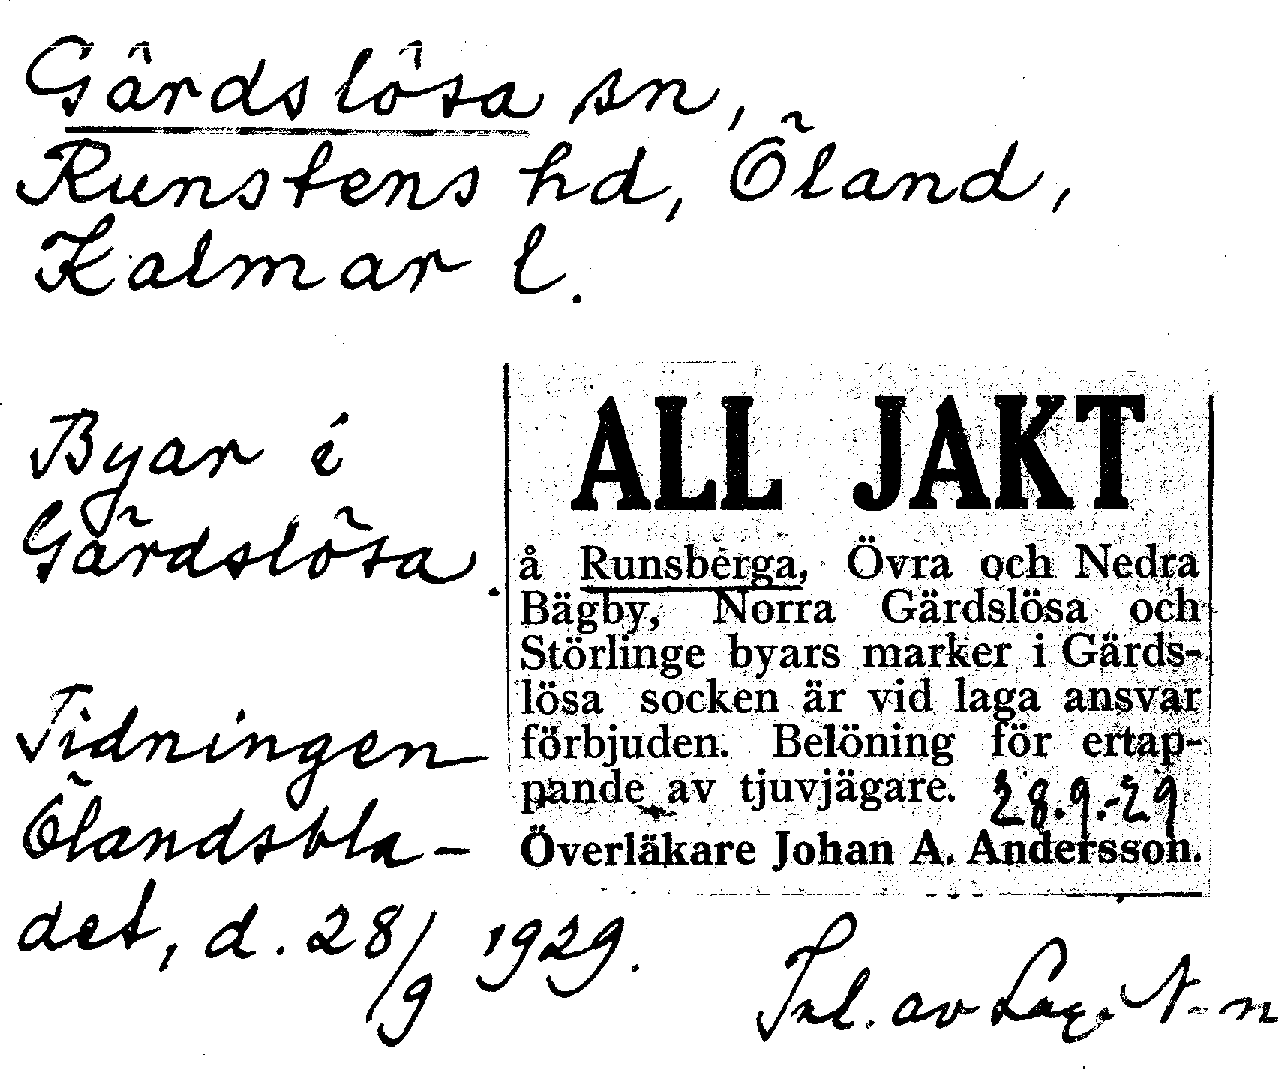 Gärdslösa sn,
Runstens hd, Öland,
Kalmar l.
Byar i
Gärdslösa.
Tidningen
Ölandsbla-
det, d. 28/9 1929.
ALL JAKT
å Runsberga, Övra och Nedra
Bägby, Norra Gärdslösa och
Störlinge byars marker i Gärds-
lösa socken är vid laga ansvar
förbjuden. Belöning för ertap-
pande av tjuvjägare. 28.9.-29
Överläkare Johan A. Andersson.
Inl. av